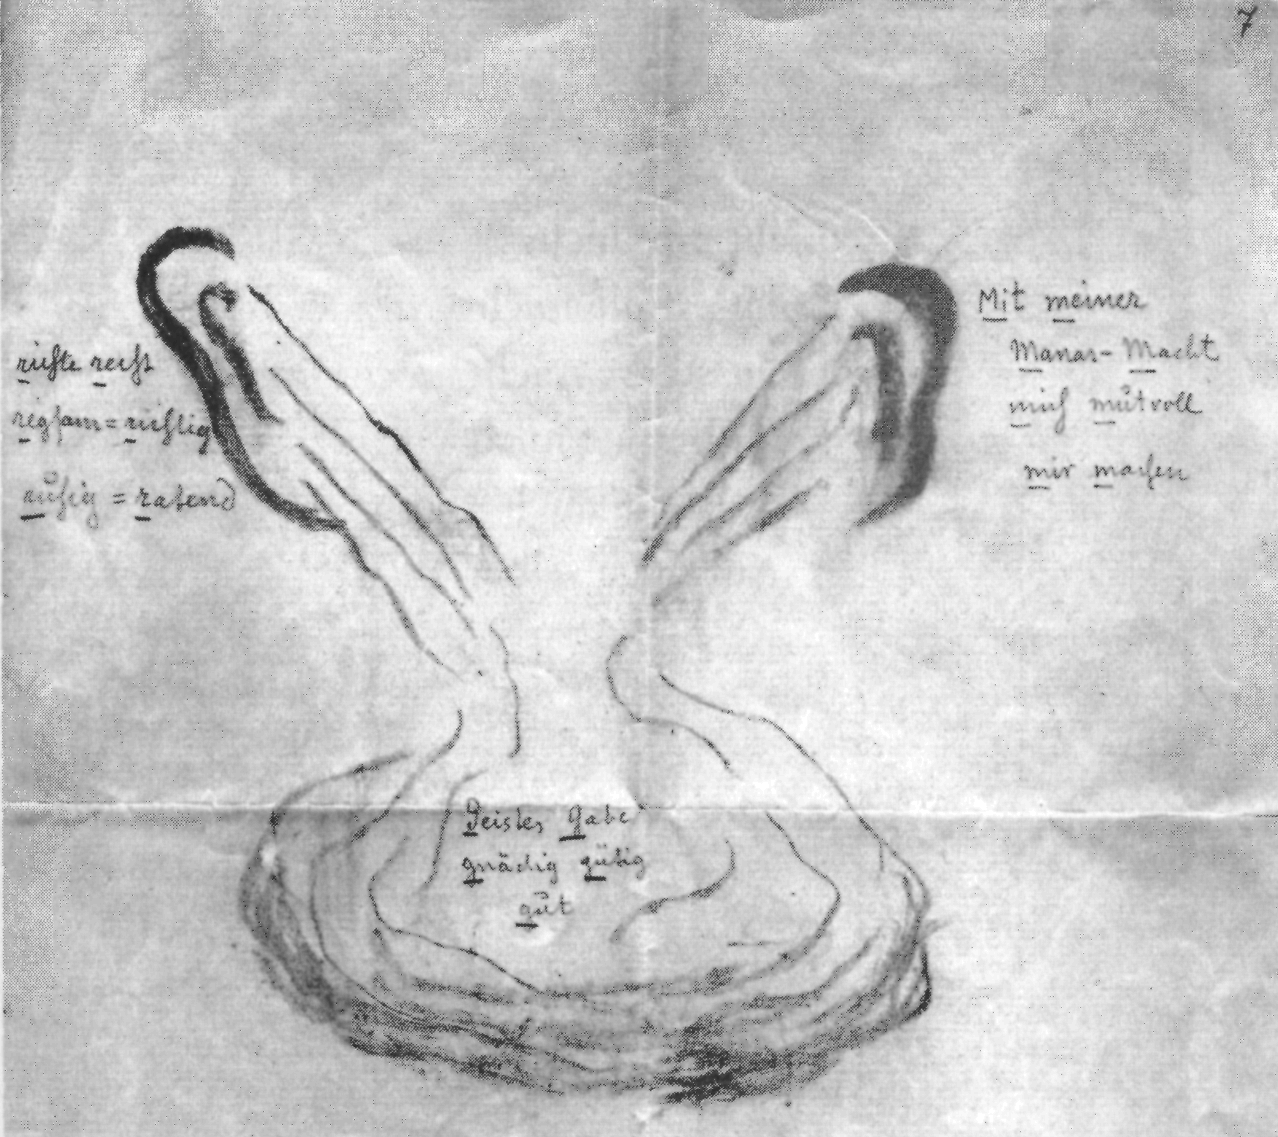 7
richte recht
regsam=richtig
ruhig = ratend
Mit meiner
Manas-Macht
mich mutvoll
mir machen
Geistes Gabe
gnädig gütig
gut